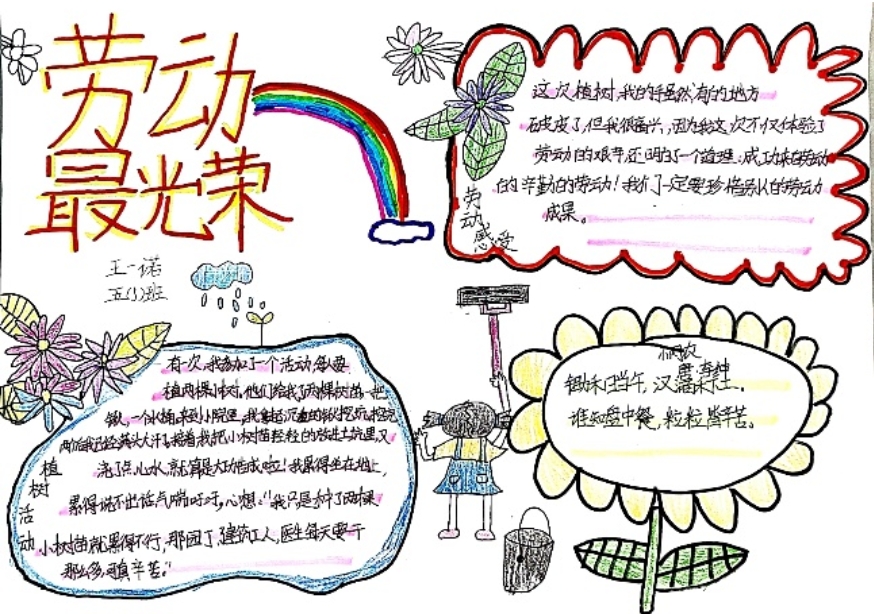 劳动
最光荣
王一诺
五(1)班
劳动感受
这次植树,我的手虽然有的地方
破皮了,但我很高兴,因为我这次不仅体验了
劳动的艰辛还明白了一个道理:成功来自劳动
的辛勤的劳动!我们一定要珍惜别人的劳动
成果。
植树活动
有一次,我参加了一个活动,每人要
植两棵小树。他们给我了两棵树苗、一把
锹、一个水桶,来到小院里,我拿起沉重的锹挖坑,挖完
两个后我已经满头大汗了。接着我把小树苗轻轻的放进土坑里,又
浇了点儿水,就算是大功告成啦!我累得坐在地上,
累得说不出话,气喘吁吁,心想:“我只是种了两棵
小树苗就累得不行,那园丁,建筑工人,医生每天要干
那么多,可真辛苦。”
悯农
唐·李绅
锄禾日当午,汗滴禾下土。
谁知盘中餐,粒粒皆辛苦。